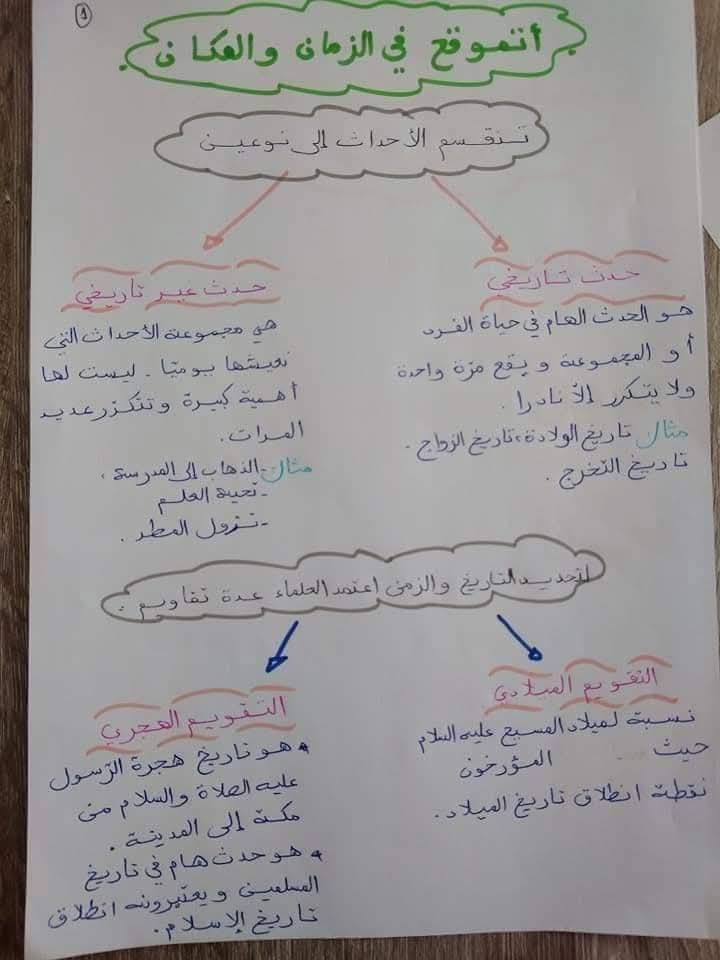 1
أتموقع في الزمان والمكان.
تنقسم الأحداث إلى نوعين
حدث تاريخي
هو الحدث الهام في حياة الفرد
أو المجموعة ويقع مرّة واحدة
ولا يتكرر إلاّ نادرا.
مثال تاريخ الولادة، تاريخ الزواج.
تاريخ التخرج.
حدث غير تاريخي
هي مجموعة الأحداث التي
نعيشها يوميّا. ليست لها
أهمية كبيرة وتتكرّر عديد
المرات.
مثال: -الذهاب إلى المدرسة،
-تحية العلم
-نزول المطر.
لتحديد التاريخ والزمن اعتمد العلماء عدة تقاويم.
التقويم الميلادي
نسبة لميلاد المسيح عليه السلام
حيث المؤرخون
نقطة انطلاق تاريخ الميلاد.
التقويم الهجري
* هو تاريخ هجرة الرّسول
عليه الصلاة والسلام من
مكة إلى المدينة.
* هو حدث هام في تاريخ
المسلمين ويعتبرونه انطلاق
تاريخ الإسلام.